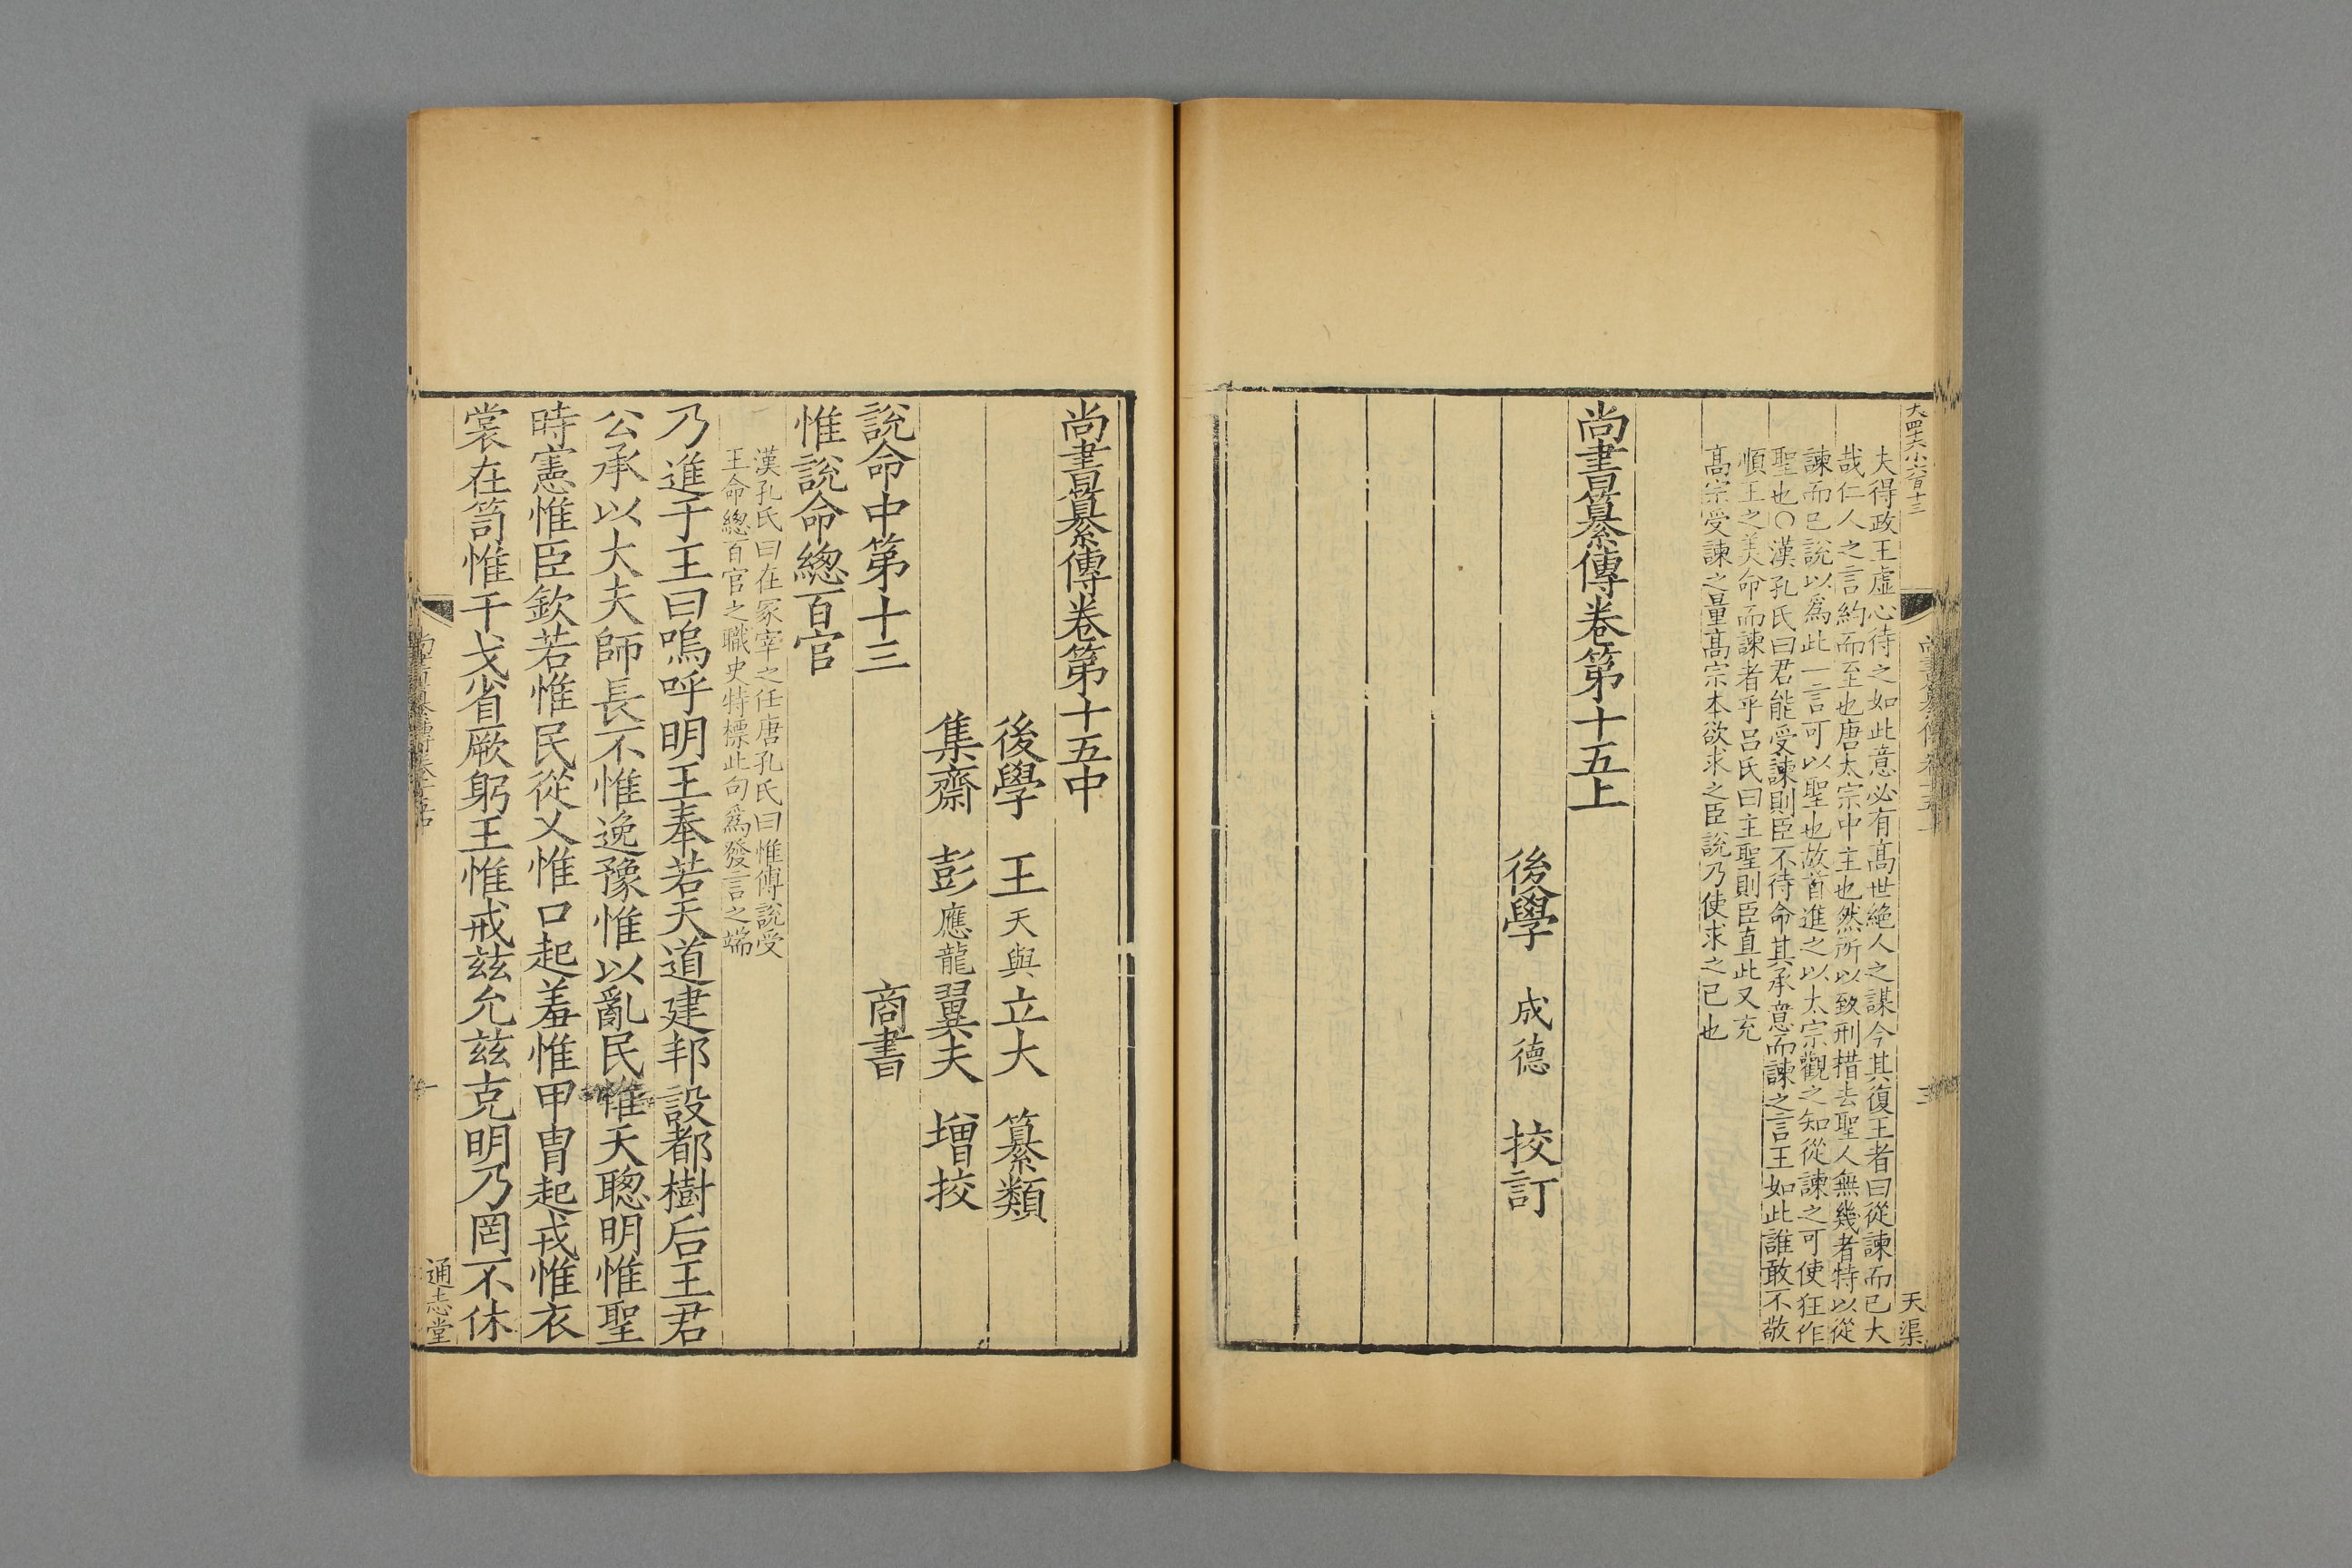 大四十六小六百十三
天渠
夫得政王虛心待之如此意必有髙世絶人之謀今其復王者曰從諫而已大
哉仁人之言約而至也唐太宗中主也然所以致刑措去聖人無幾者特以從
諫而已說以爲此一言可以聖也故首進之以太宗觀之知從諫之可使狂作
聖也〇漢孔氏曰君能受諫則臣不待命其承意而諫之言王如此誰敢不敬
順王之美命而諫者乎呂氏曰主聖則臣直此又充
髙宗受諫之量髙宗本欲求之臣說乃使求之已也
尚書纂傳卷第十五上
後學 成德 挍訂
尚書纂傳卷第十五中
後學 王天與立大 纂類
集齋 彭應龍翼夫 增挍
說命中第十三 商書
惟說命總百官
漢孔氏曰在冢宰之任唐孔氏曰惟傅說受
王命總百官之職史特標此句爲發言之端
乃進于王曰嗚呼明王奉若天道建邦設都樹后王君
公承以大夫師長不惟逸豫惟以亂民惟天聰明惟聖
時憲惟臣欽若惟民從乂惟口起羞惟甲冑起戎惟衣
裳在笥惟干戈省厥躬王惟戒茲允茲克明乃罔不休
通志堂